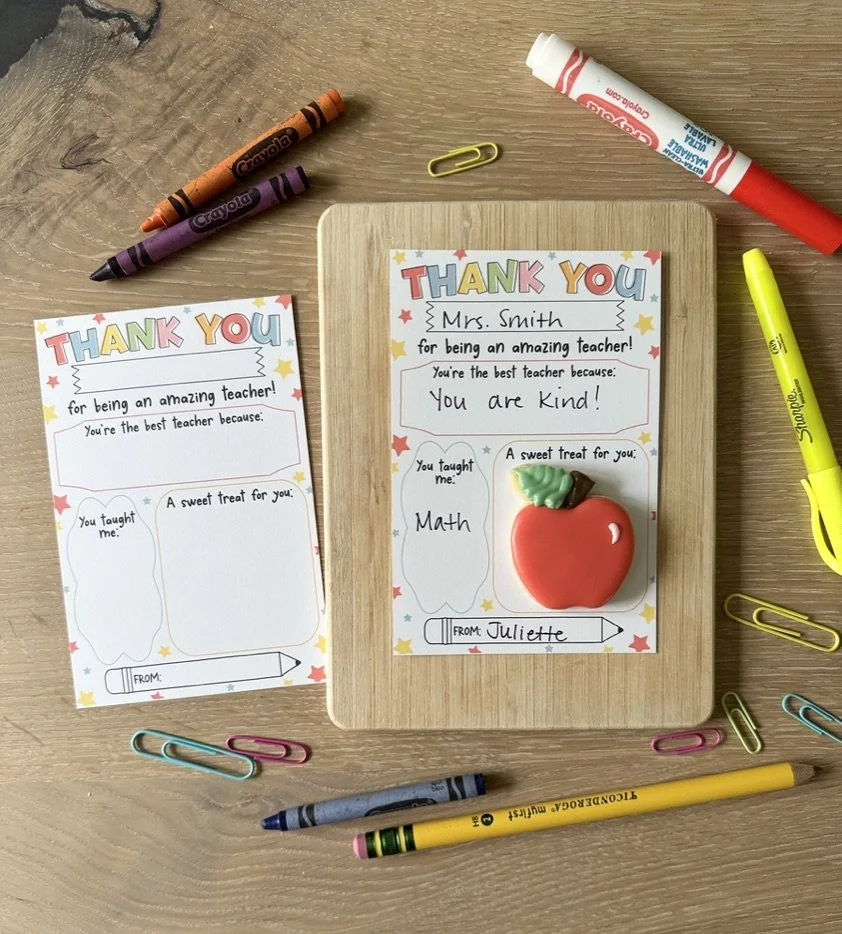 Crayola
Crayola
Crayola.com
Crayola
ULTRA-CLEAN
WASHABLE
LAVABLE
THANK YOU
for being an amazing teacher!
You're the best teacher because:
You taught
me:
A sweet treat for you:
FROM:
THANK YOU
Mrs. Smith
for being an amazing teacher!
You're the best teacher because:
You are kind!
You taught
me:
Math
A sweet treat for you:
FROM: Juliette
Sharpie
TICONDEROGA® myfirst
2
HB